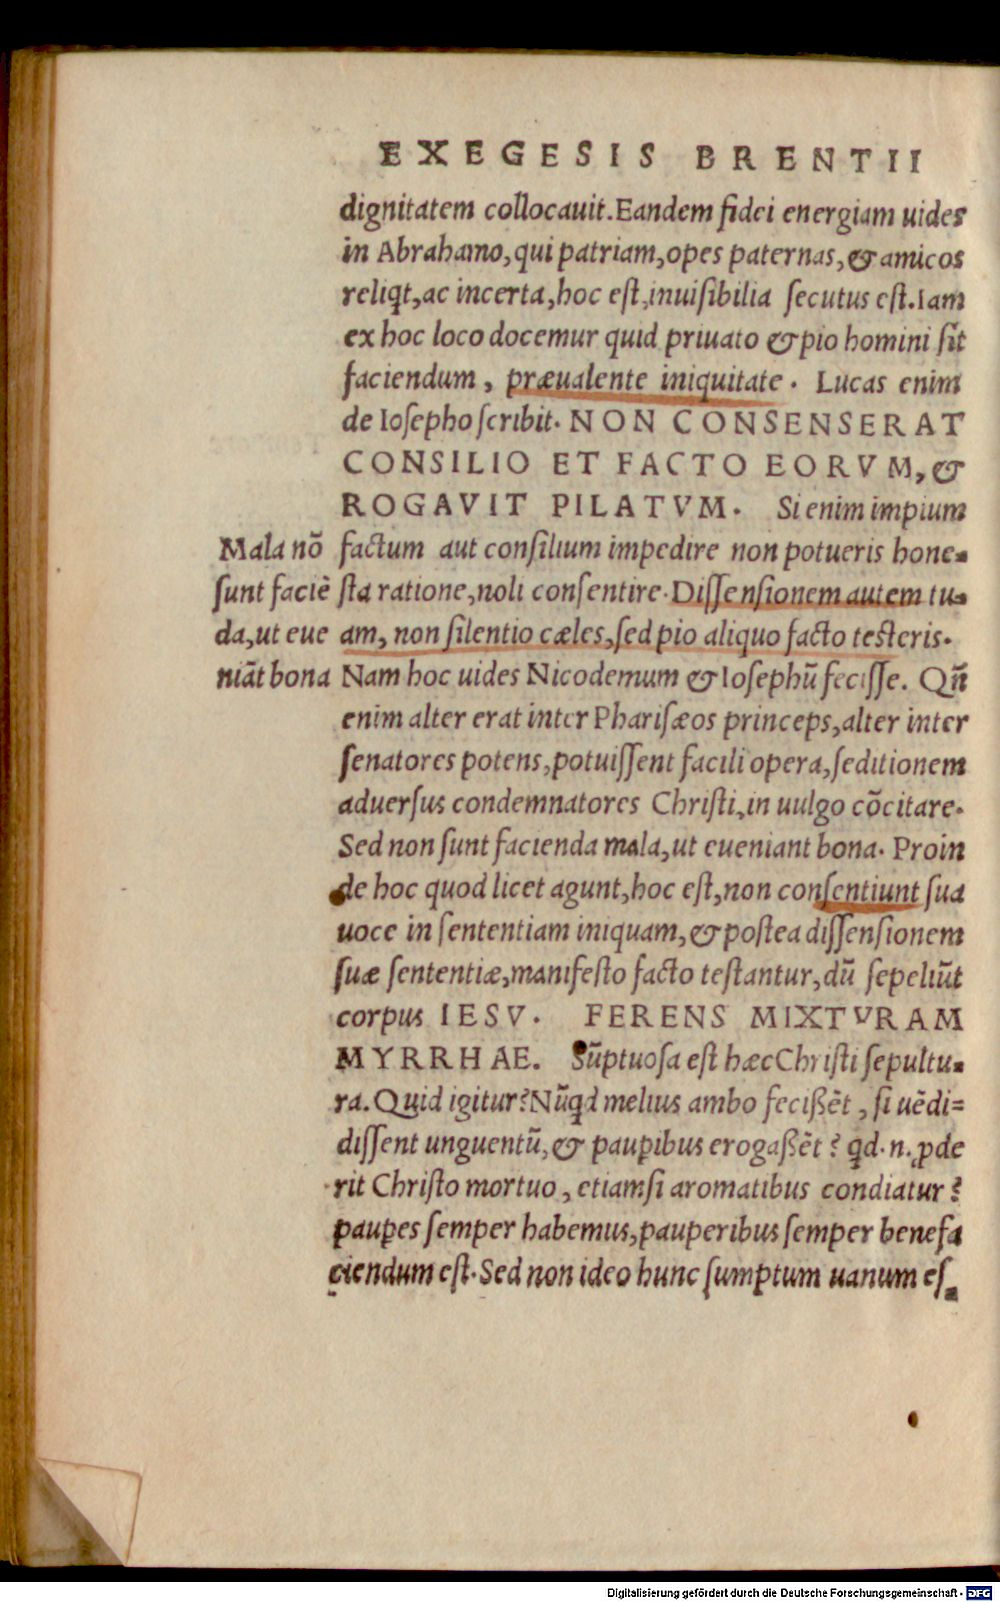 EXEGESIS BRENTII
dignitatem collocauit. Eandem fidei energiam uides
in Abrahamo, qui patriam, opes paternas, & amicos
reliqt, ac incerta, hoc est, inuisibilia secutus est. Iam
ex hoc loco docemur quid priuato & pio homini sit
faciendum, præualente iniquitate. Lucas enim
de Iosepho scribit. NON CONSENSERAT
CONSILIO ET FACTO EORVM, &
ROGAVIT PILATVM. Si enim impium
factum aut consilium impedire non potueris hone-
sta ratione, noli consentire. Dissensionem autem tu-
am, non silentio cæles, sed pio aliquo facto testeris.
Nam hoc uides Nicodemum & Iosephũ fecisse. Qñ
enim alter erat inter Pharisæos princeps, alter inter
senatores potens, potuissent facili opera, seditionem
aduersus condemnatores Christi, in uulgo cõcitare.
Sed non sunt facienda mala, ut eueniant bona. Proin
de hoc quod licet agunt, hoc est, non consentiunt sua
uoce in sententiam iniquam, & postea dissensionem
suæ sententiæ, manifesto facto testantur, dũ sepeliũt
corpus IESV. FERENS MIXTVRAM
MYRRHAE. Sũptuosa est hæc Christi sepultu-
ra. Quid igitur? Nũqd melius ambo fecißẽt, si uẽdi=
dissent unguentũ, & paupibus erogaßẽt? qd. n. ꝓde
rit Christo mortuo, etiamsi aromatibus condiatur?
paupes semper habemus, pauperibus semper benefa
ciendum est. Sed non ideo hunc sumptum uanum es-
Mala nõ
sunt faciẽ
da, ut eue
niãt bona
Digitalisierung gefördert durch die Deutsche Forschungsgemeinschaft - DFG